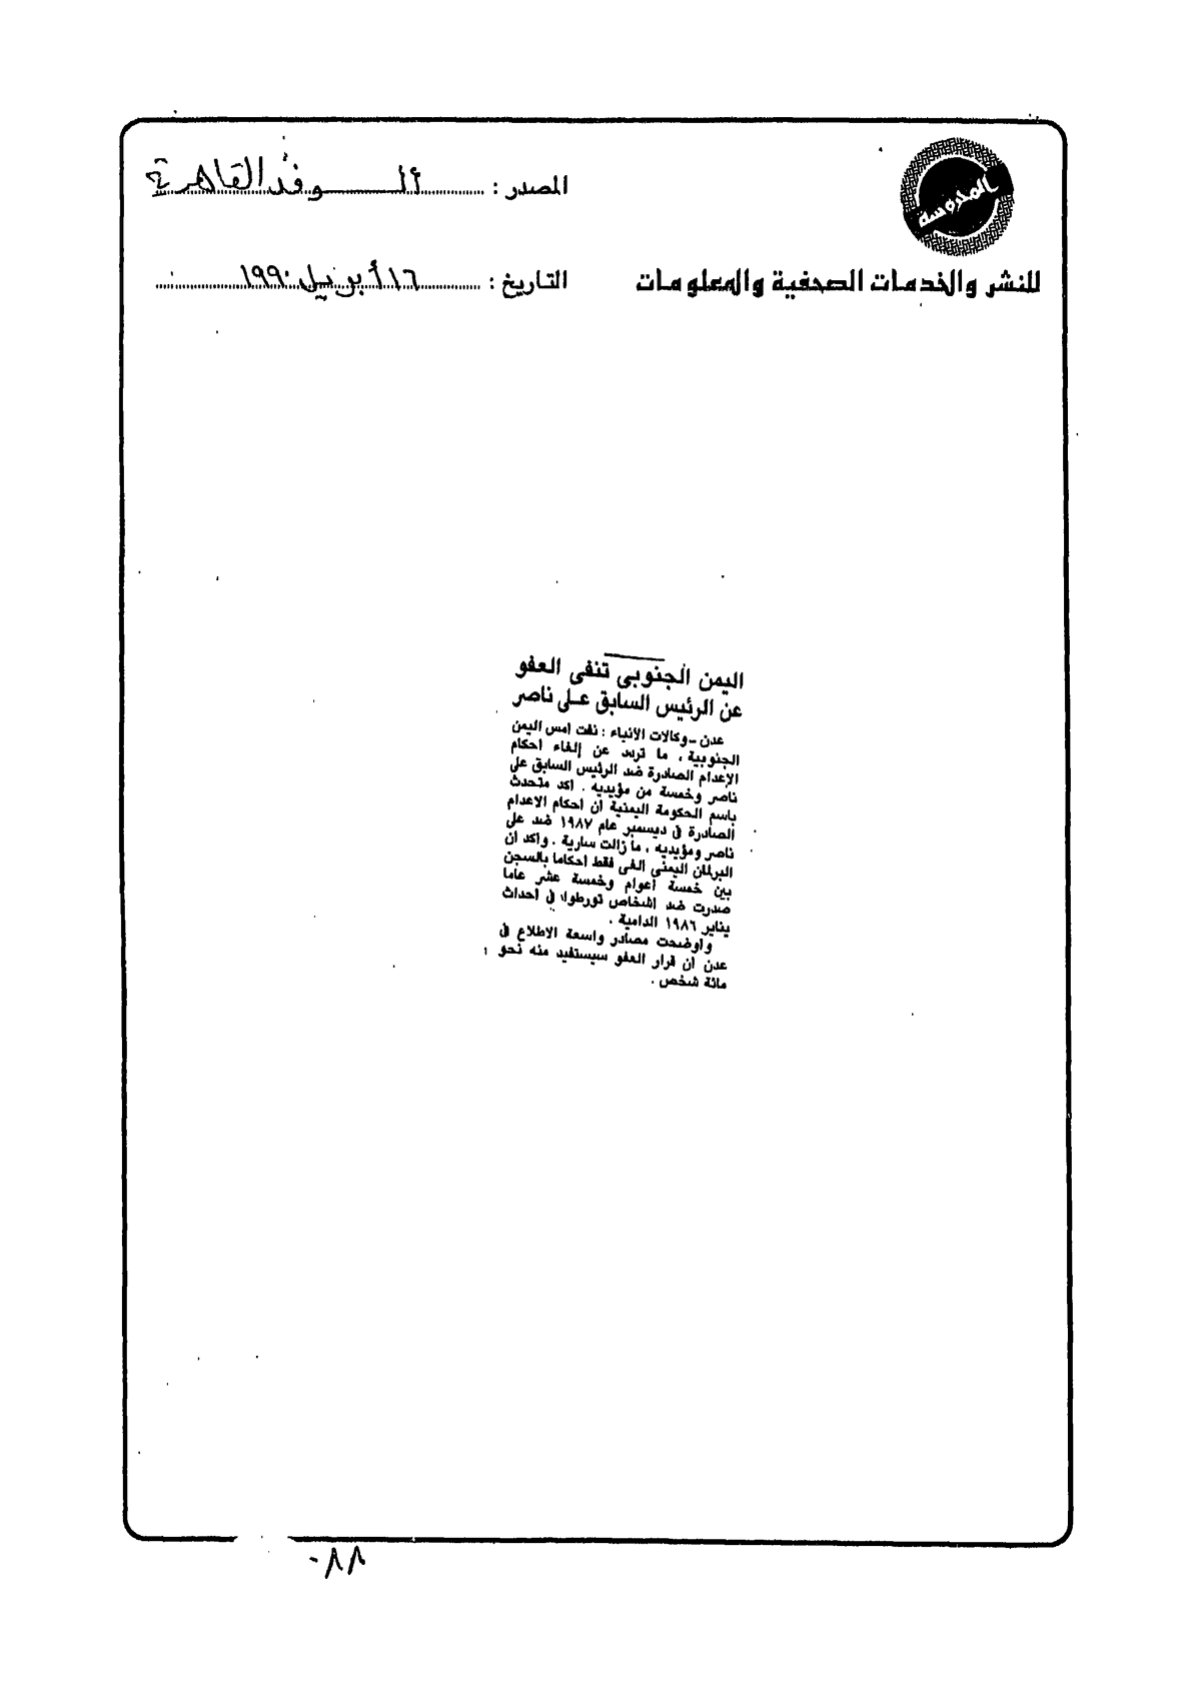 المحروسة
للنشر والخدمات الصحفية والمعلومات
المصدر : الــــوفد القاهرية
التاريخ : ١٦ أبريل ١٩٩٠
اليمن الجنوبى تنفى العفو
عن الرئيس السابق على ناصر
عدن - وكالات الأنباء : نفت امس اليمن
الجنوبية ، ما تردد عن إلغاء احكام
الإعدام الصادرة ضد الرئيس السابق على
ناصر وخمسة من مؤيديه . اكد متحدث
باسم الحكومة اليمنية ان احكام الاعدام
الصادرة فى ديسمبر عام ١٩٨٧ ضد على
ناصر ومؤيديه ، ما زالت سارية . واكد ان
البرلمان اليمنى الغى فقط احكاما بالسجن
بين خمسة أعوام وخمسة عشر عاما
صدرت ضد اشخاص تورطوا فى أحداث
يناير ١٩٨٦ الدامية .
واوضحت مصادر واسعة الاطلاع فى
عدن ان قرار العفو سيستفيد منه نحو
مائة شخص .